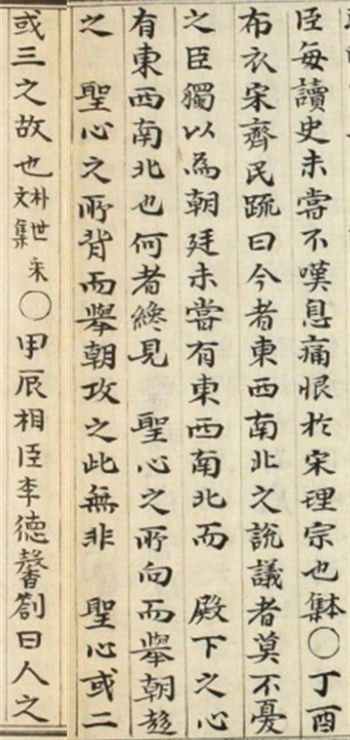 臣每讀史未嘗不嘆息痛恨於宋理宗也本集○丁酉
布衣宋齊民疏曰今者東西南北之說議者莫不憂
之臣獨以為朝廷未嘗有東西南北而 殿下之心
有東西南北也何者終見 聖心之所向而擧朝趍
之 聖心之所背而擧朝攻之此無非 聖心或二
或三之故也朴世采文集○甲辰相臣李德馨劄曰人之